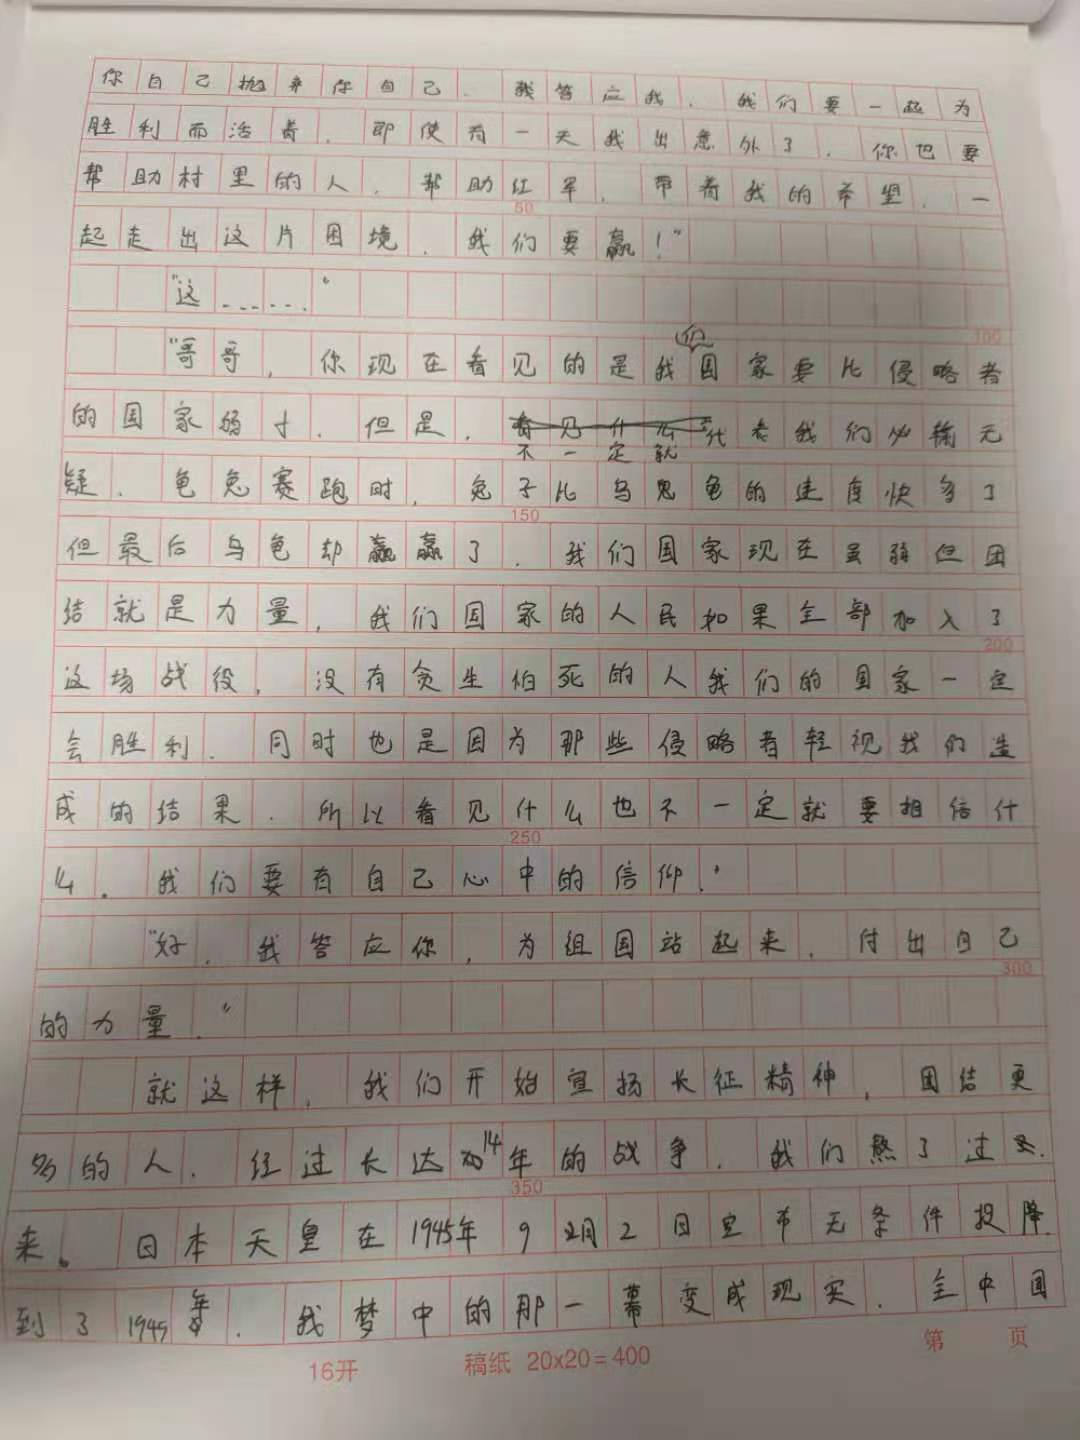 你自己抛弃你自己.我答应我.我们要一起为
胜利而活着.即使有一天我出意外了.你也要
帮助村里的人.帮助红军.带着我的希望.一
50
起走出这片困境.我们要赢!"
"这......"
100
们
"哥哥,你现在看见的是我国家要比侵略者
的国家弱小.但是.看见什么代表我们必输无
不一定就
疑.龟兔赛跑时,兔子比乌龟的速度快多了
150
但最后乌龟却赢赢了.我们国家现在虽弱但团
结就是力量,我们国家的人民如果全部加入了
200
这场战役,没有贪生怕死的人我们的国家一定
会胜利.同时也是因为那些侵略者轻视我们造
成的结果.所以看见什么也不一定就要相信什
250
么.我们要有自己心中的信仰."
"好.我答应你,为组国站起来.付出自己
300
的力量."
就这样,我们开始宣扬长征精神,团结更
多的人.经过长达14年的战争.我们熬了过
350
来。日本天皇在1945年9月2日宣布无条件投降.
到了1949年.我梦中的那一幕变成现实.全中国
16开 稿纸 20x20=400 第 页